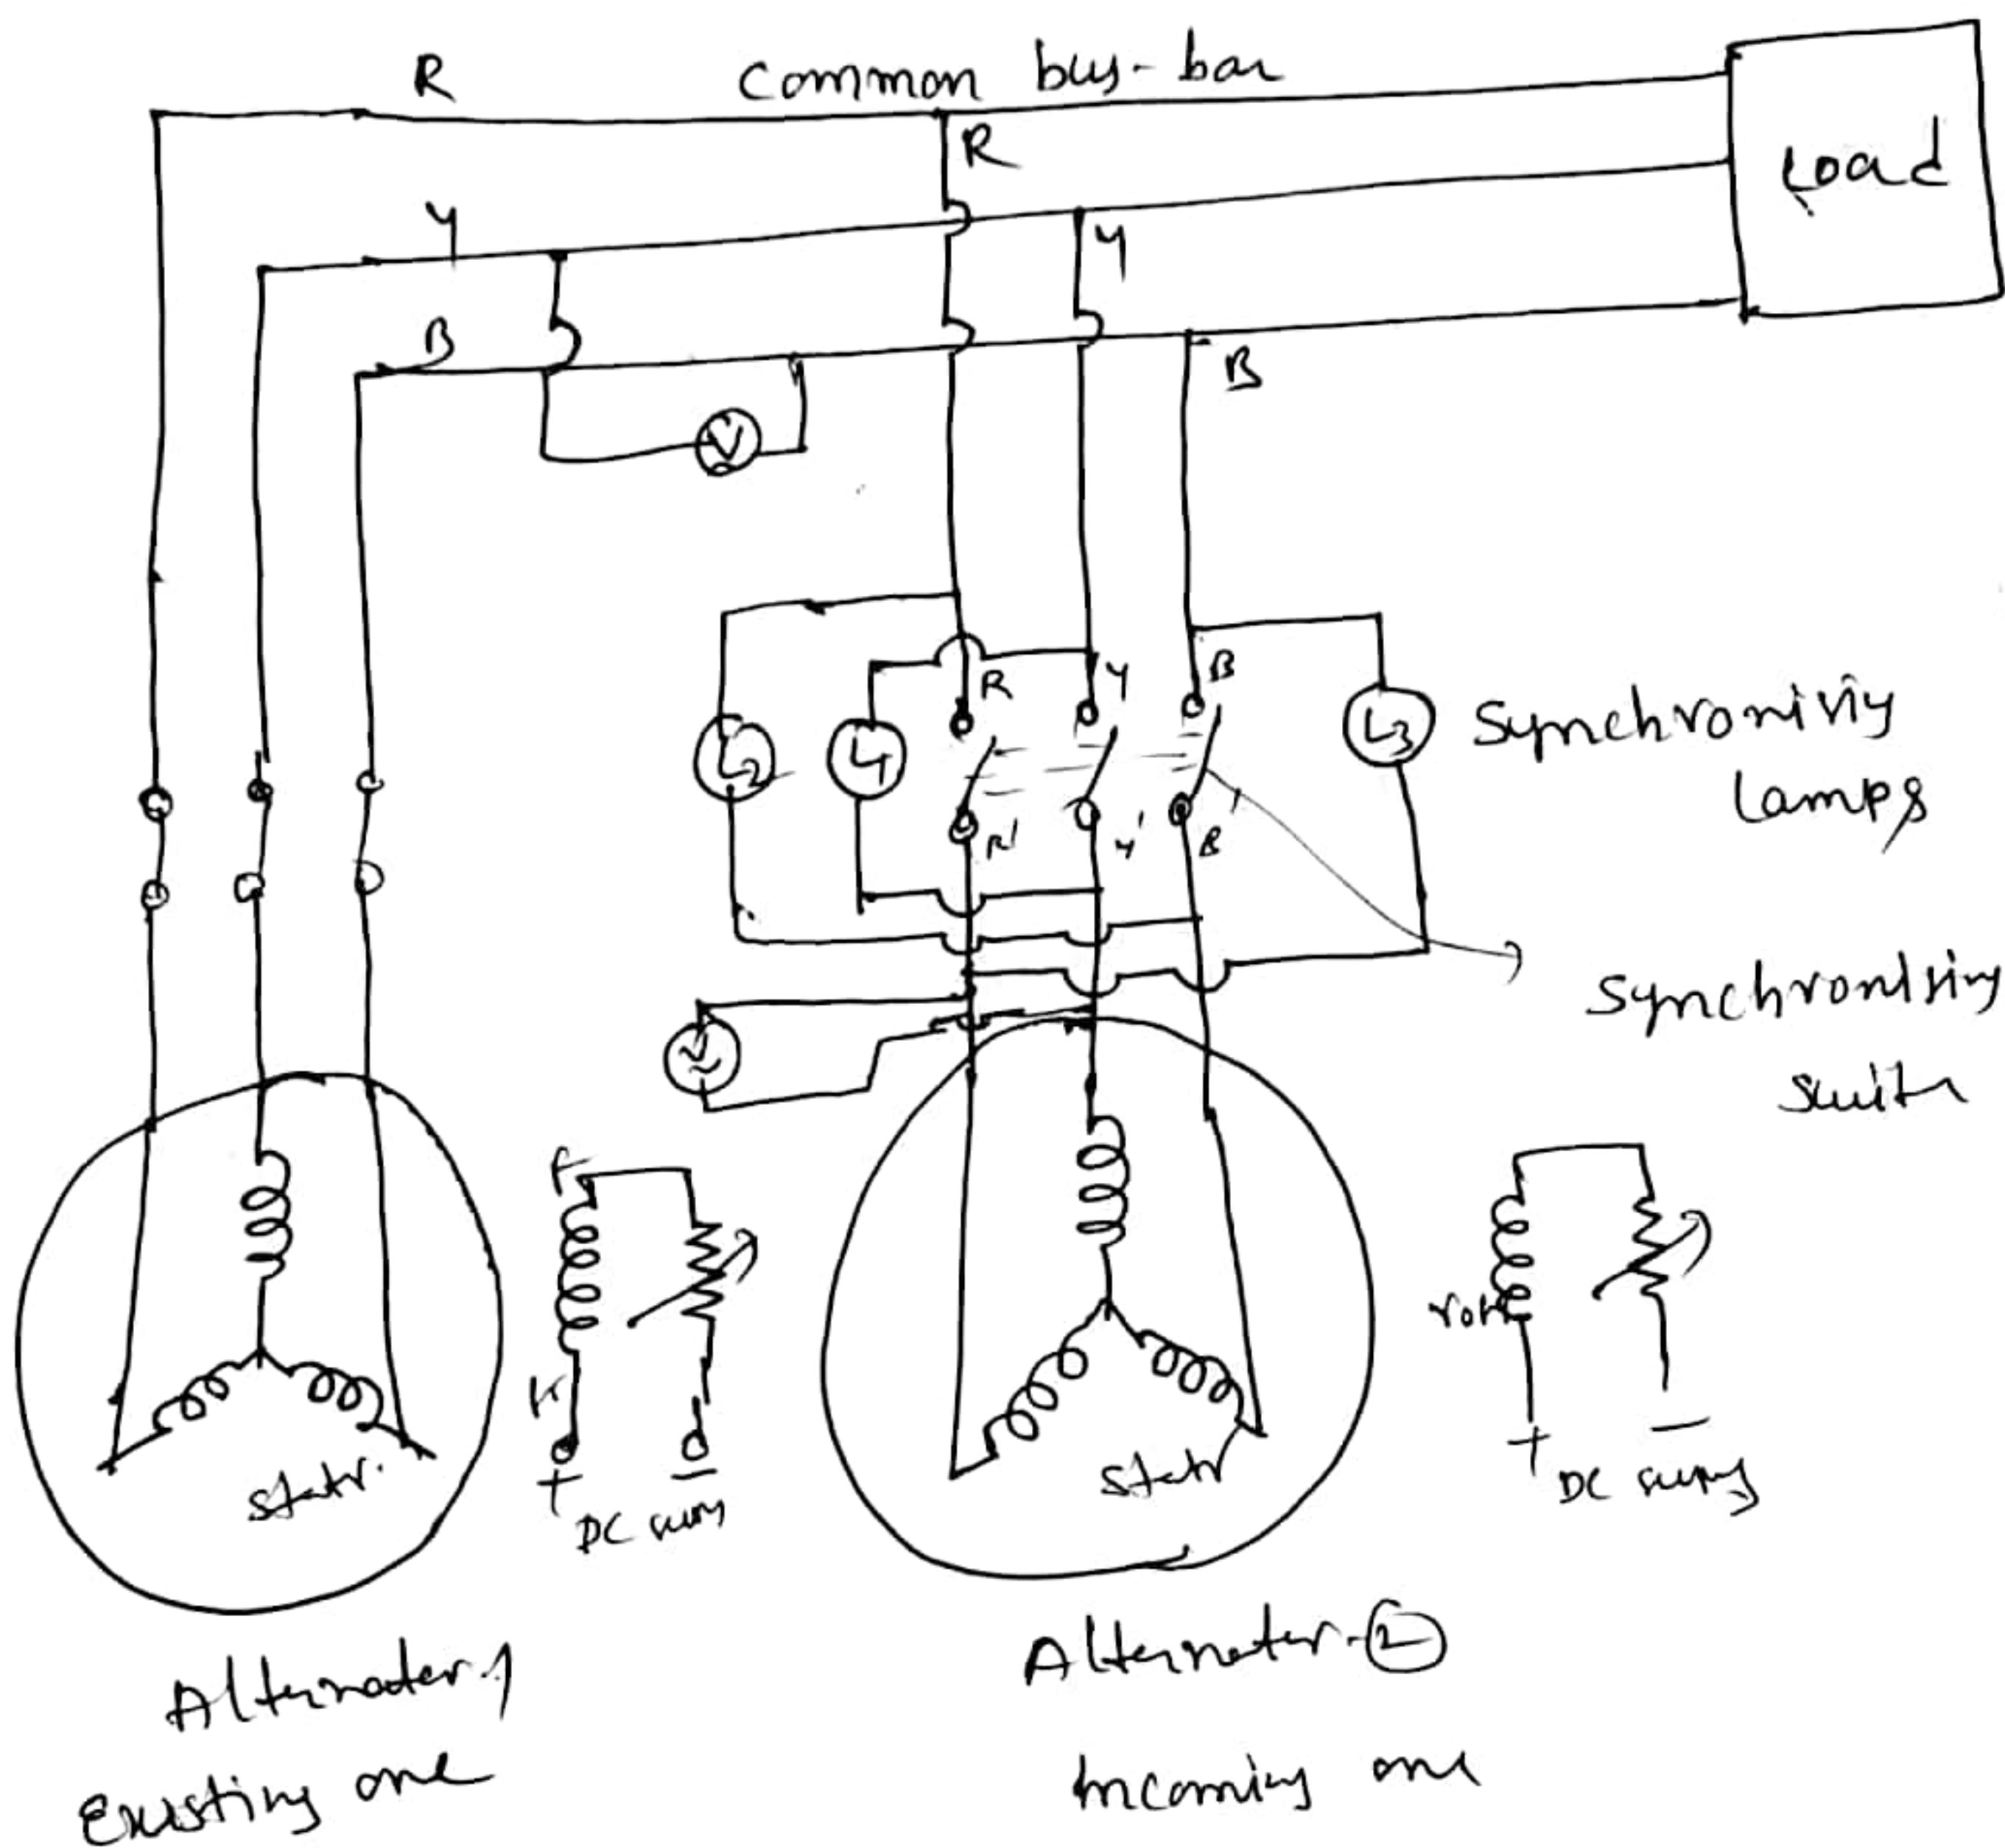 R
Common bus-bar
R
Load
Y
Y
B
B
V
R
Y
B
L2
L1
L3
Synchroniviy
Lamps
R'
Y'
B'
Synchronising
V
Switch
F
K
+
-
DC
Stator
Stator
+
-
DC supply
Alternator-1
Existing one
Alternator-2
Incoming one